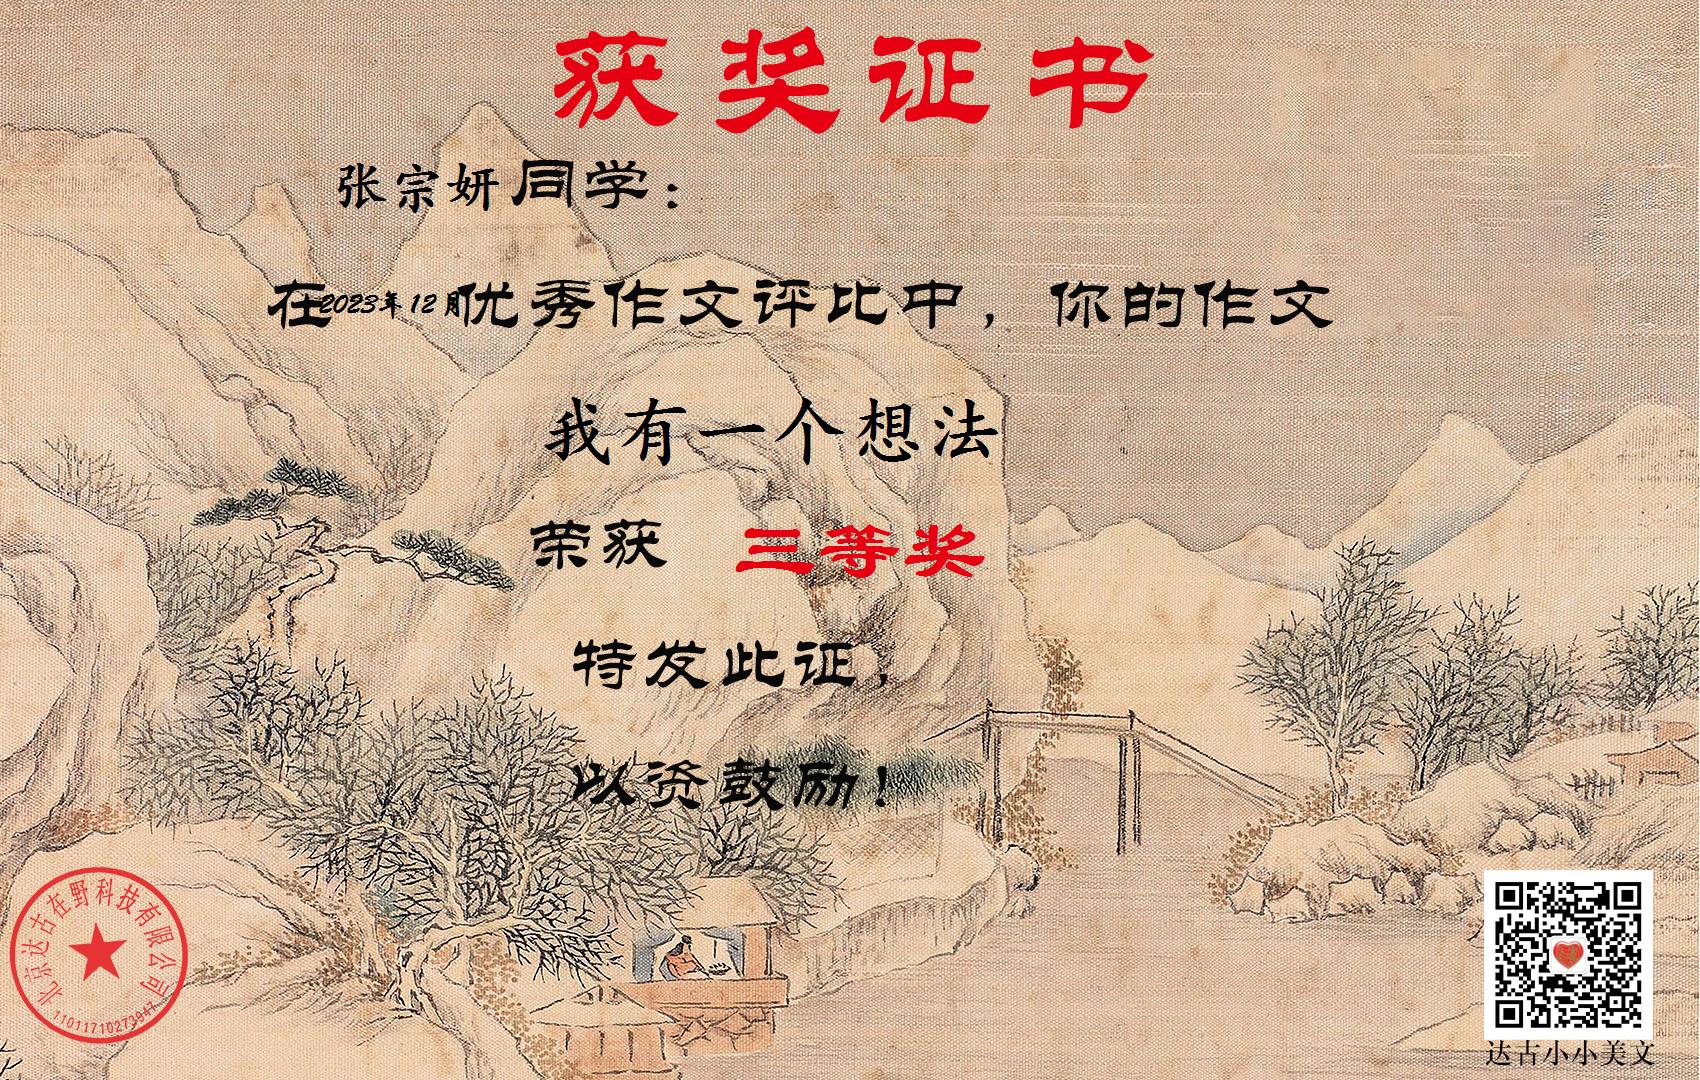 获奖证书
张宗妍同学：
在2023年12月优秀作文评比中，你的作文
我有一个想法
荣获 三等奖
特发此证，
以资鼓励！
北京达古在野科技有限公司
11011710273947
达古小小美文